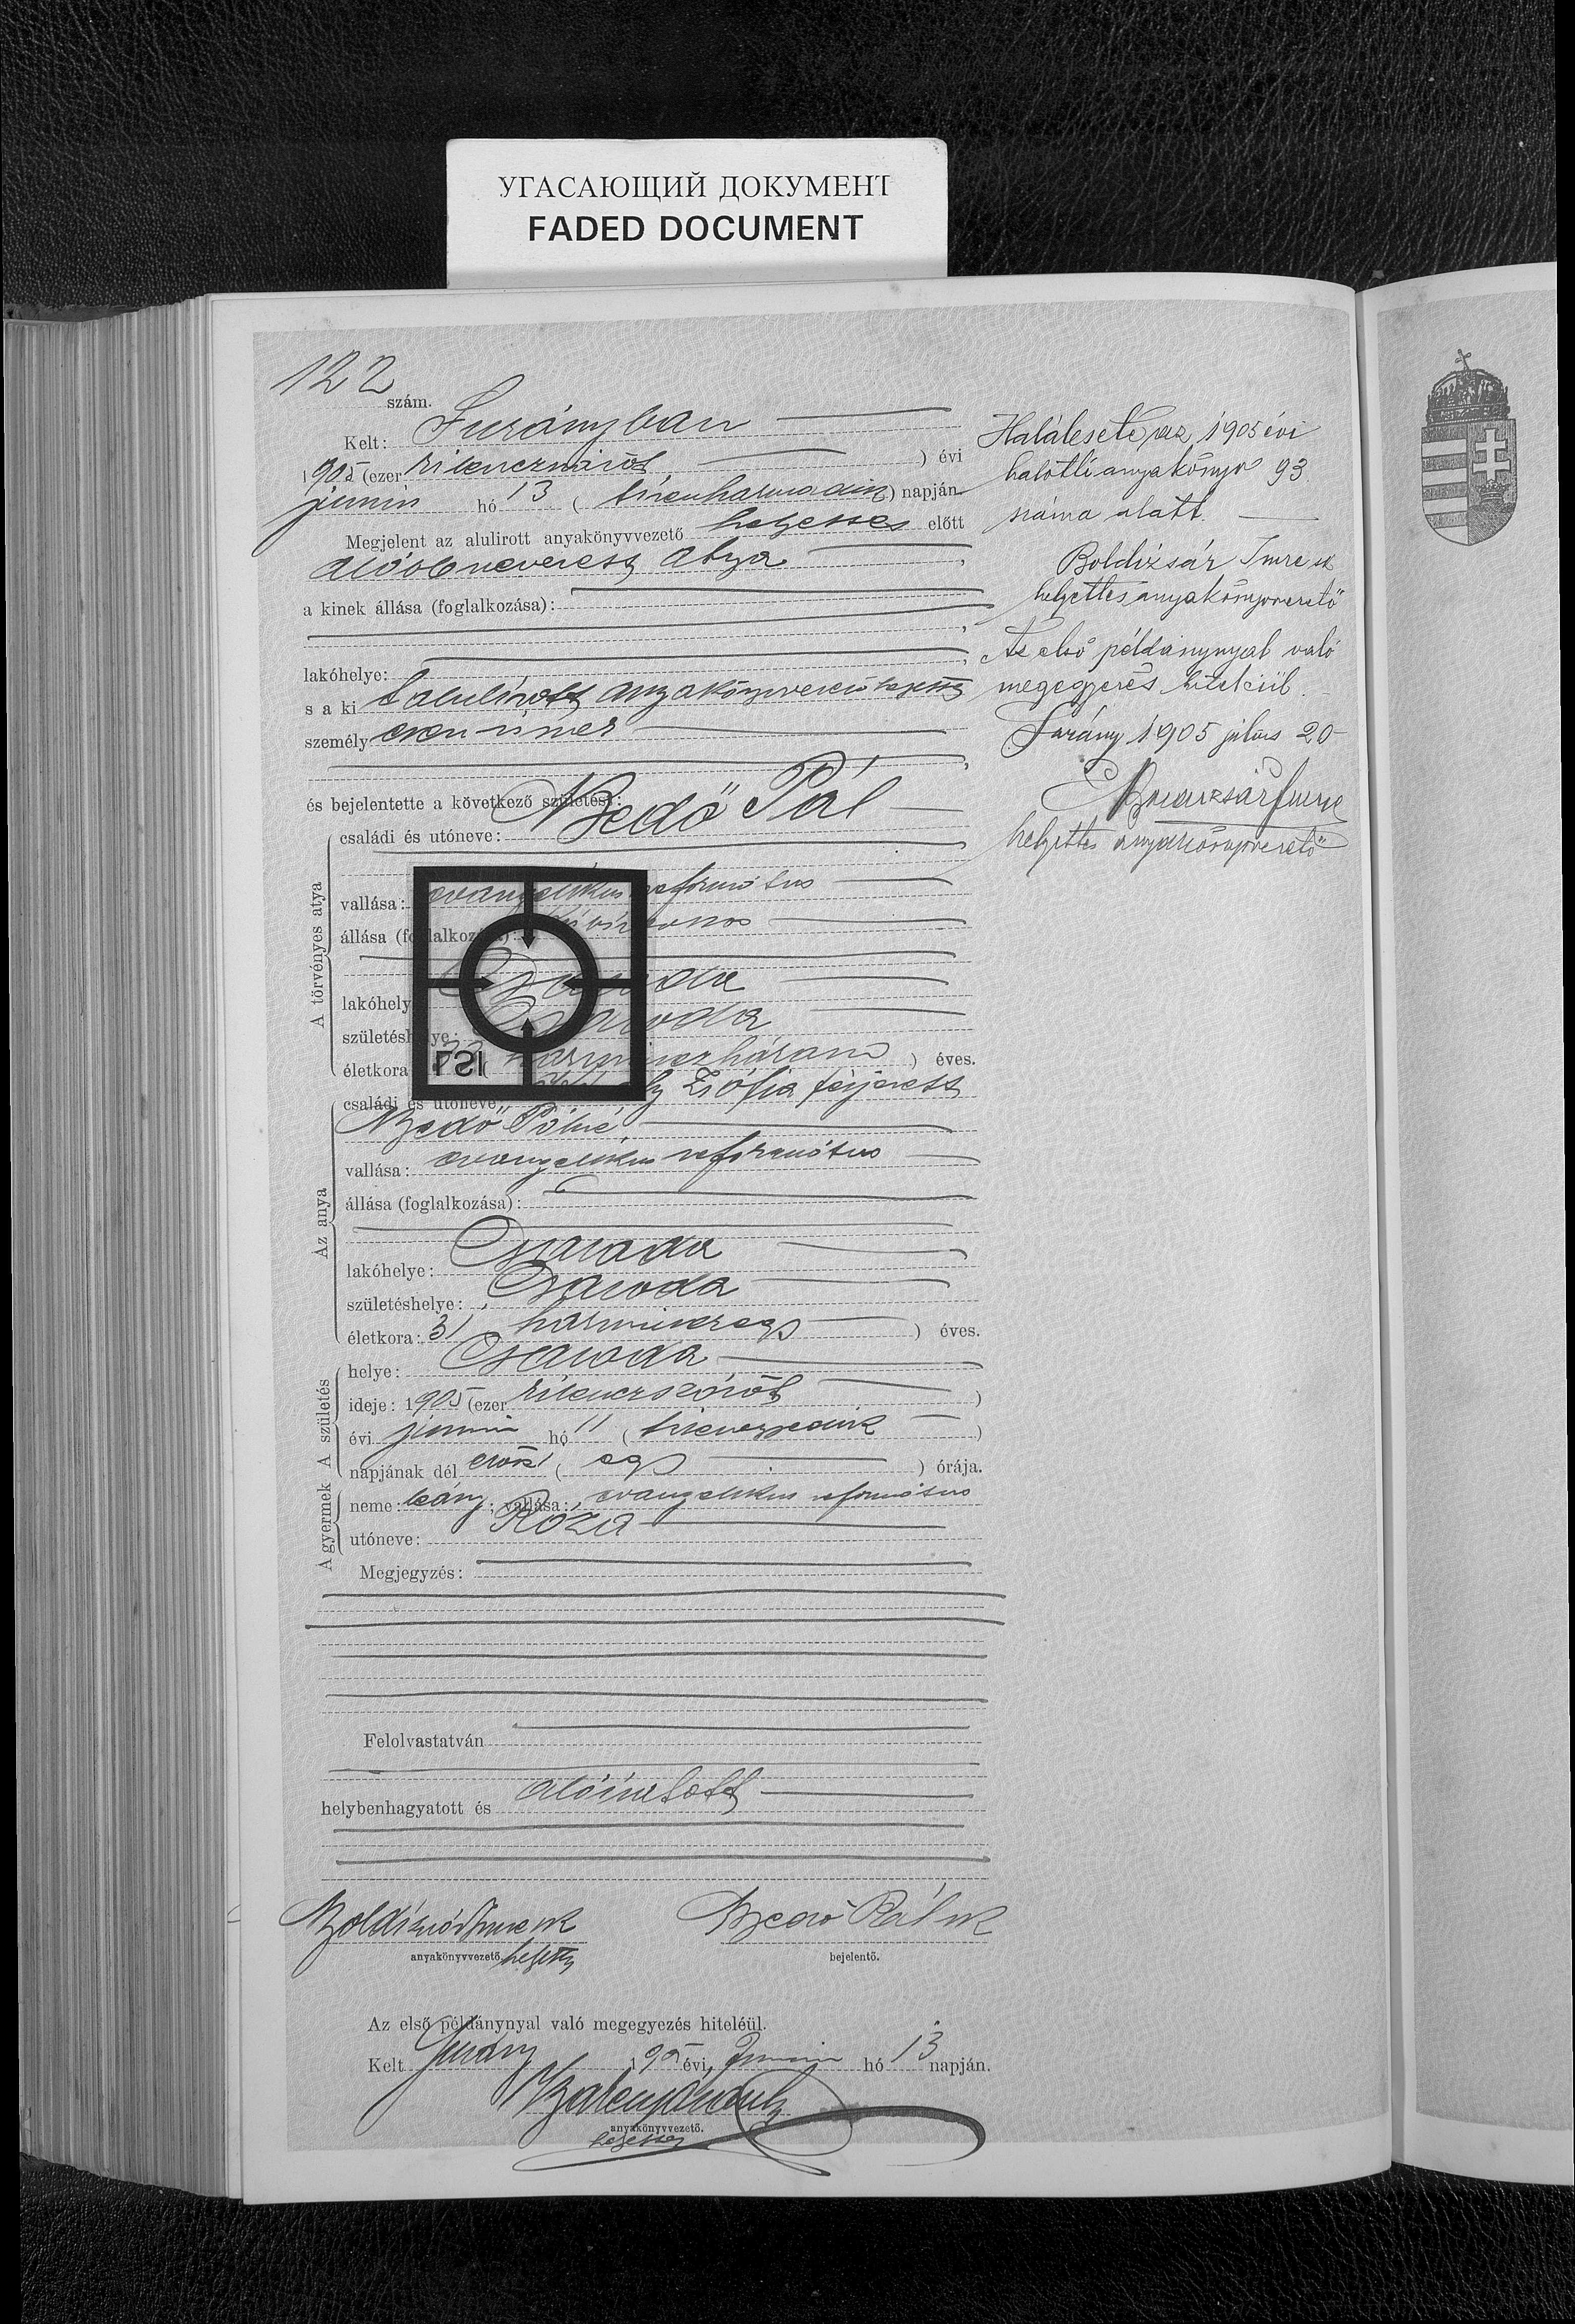 УГАСАЮЩИЙ ДОКУМЕНТ
FADED DOCUMENT
122 szám.
Kelt: Surányban
1905 (ezer kilenczszázöt ) évi
junius hó 13 ( tizenharmadik ) napján.
Megjelent az alulirott anyakönyvvezető helyettes előtt
alóbb nevezett atya,
a kinek állása (foglalkozása):
lakóhelye:
s a ki alulírott anyakönyvvezető helyettes
személyesen ismer
és bejelentette a következő születést:
A törvényes atya
családi és utóneve: Bedő Pál
vallása: evangelikus református
állása (foglalkozása):
lakóhelye: Csaroda
születéshelye: Csaroda
életkora: 33 ( harminczhárom ) éves.
Az anya
családi és utóneve: Zsófia férjezett
Bedő Pálné
vallása: evangelikus református
állása (foglalkozása):
lakóhelye: Csaroda
születéshelye: Csaroda
életkora: 31 harminczegy ) éves.
A születés
helye: Csaroda
ideje: 1905 (ezer kilenczszázöt )
évi junius hó 11 ( tizenegyedik )
napjának dél előtt 1 ( egy ) órája.
A gyermek
neme: leány; vallása: evangelikus református
utóneve: Róza
Megjegyzés:
Felolvastatván
helybenhagyatott és aláíratott
Boldizsár Imre sk Bedő Pál sk
anyakönyvvezető helyettes bejelentő.
Az első példánynyal való megegyezés hiteléül.
Kelt Surány 1905 évi Junius hó 13 napján.
anyakönyvvezető.
helyettes
Halálesete az 1905 évi
halotti anyakönyv 93
száma alatt.
Boldizsár Imre sk
helyettes anyakönyvvezető
Az első példánynyal való
megegyezés hiteléül.
Surány 1905 július 20
Boldizsár Imre
helyettes anyakönyvvezető
LSI